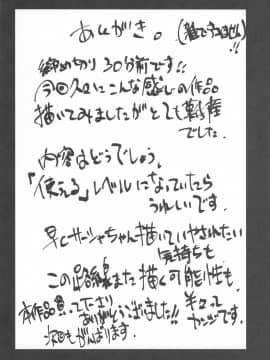 あとがき。(雑ですみません)!!
締めきり30分前です!!
今回久々にこんな感じの作品
描いてみましたがとても
でした。
内容はどうでしょう。
「使える」レベルになっていたら
うれしいです。
早くサーシャちゃん描いていやされたい
気持ちも
この路線また描く可能性も
半々って
カンジです。
本作品
ありがとうございました!!
次回もがんばります。